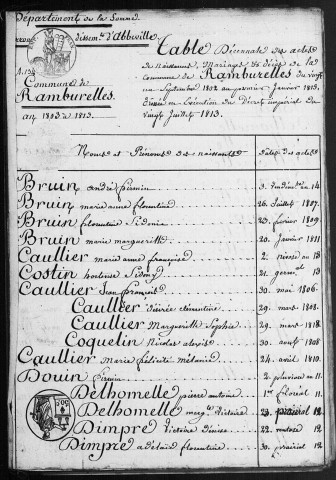 Département de la Somme
arron dissem.t d'Abbeville
Commune de
Ramburelles.
an 1803 à 1813.
Table Décennale des actes
de naissances, Mariages & décès de la
commune de Ramburelles du vingt
un Septembre 1802 au premier Janvier 1813,
Dressée en Exécution du Décret impérial du
vingt Juillet 1813.
Noms et Prénoms des naissants
Dates des actes
Bruin andré firmin 3. Vendém.re an 14
Bruin marie anne florentine 26. Juillet 1807.
Bruin florentine Sidonia 23. février 1809.
Bruin marie marguerithe 20. Janvier 1811
Caullier marie anne françoise 2. nivose an 13
Costin hortense Sidony 21. germ.al 13
Caullier Jean françois 30. mai 1806.
Caullier Désirée clémentine 29. mars 1808.
Caullier Marguerithe Sophie 29. mars 1818.
Coquelin Nicolas alexis 30. août 1808.
Caullier marie félicité mélanie 24. août 1810.
Douin firmin 2. pluviose an 11
Delhomelle pierre antoine 1er floréal 11.
Delhomelle marg.te Victoire 23. prairial 12.
Dimpre Victoire Denise 22. 12
Dimpre adélaïde florentine 30. prairial 12.